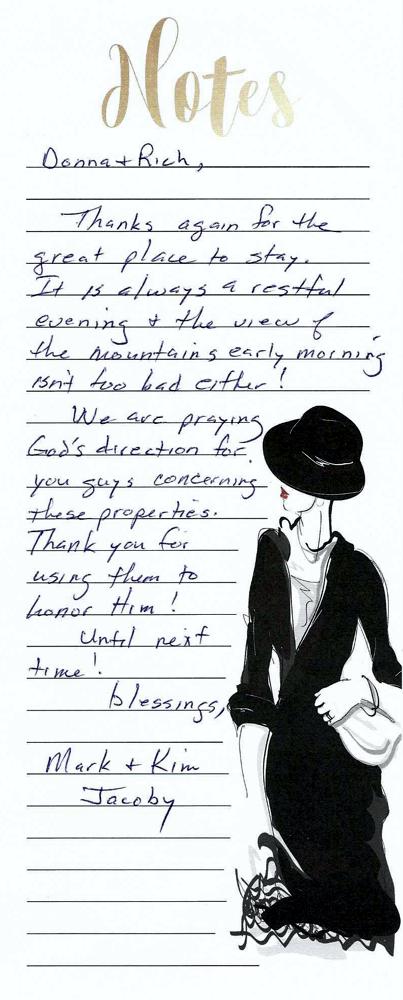 Notes
Donna + Rich,
Thanks again for the
great place to stay.
It is always a restful
evening + the view of
the mountains early morning
isn't too bad either!
We are praying
God's direction for
you guys concerning
these properties.
Thank you for
using them to
honor Him!
Until next
time!
blessings,
Mark + Kim
Jacoby